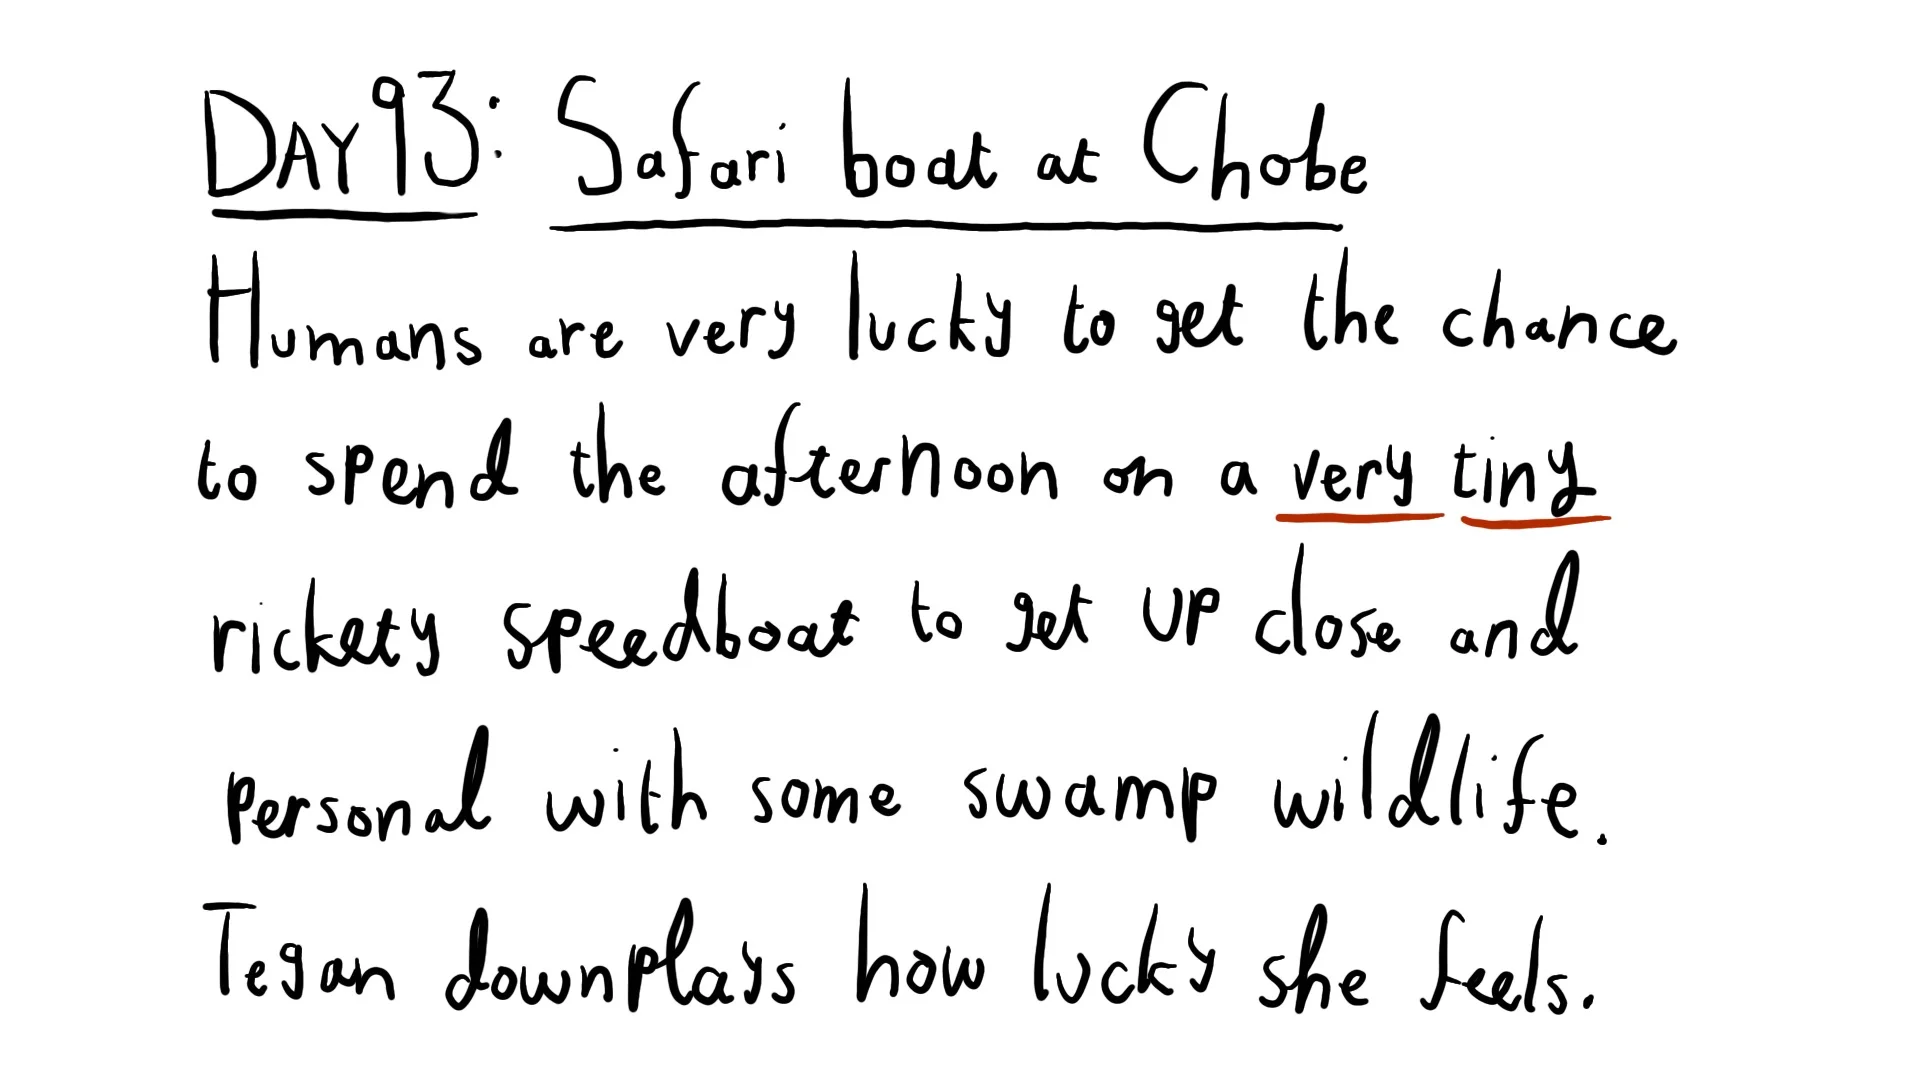 DAY 93: Safari boat at Chobe
Humans are very lucky to get the chance
to spend the afternoon on a very tiny
rickety speedboat to get up close and
personal with some swamp wildlife.
Tegan downplays how lucky she feels.